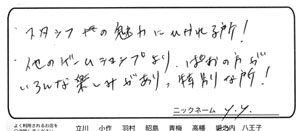 ・スタッフやの魅力にひかれる所!
・他のゲームショップより、ぱおの方が
いろんな楽しみがあり、特別な所!
ニックネーム y.y.
よく利用されるお店を
立川 小作 羽村 昭島 青梅 高幡 堀之内 八王子